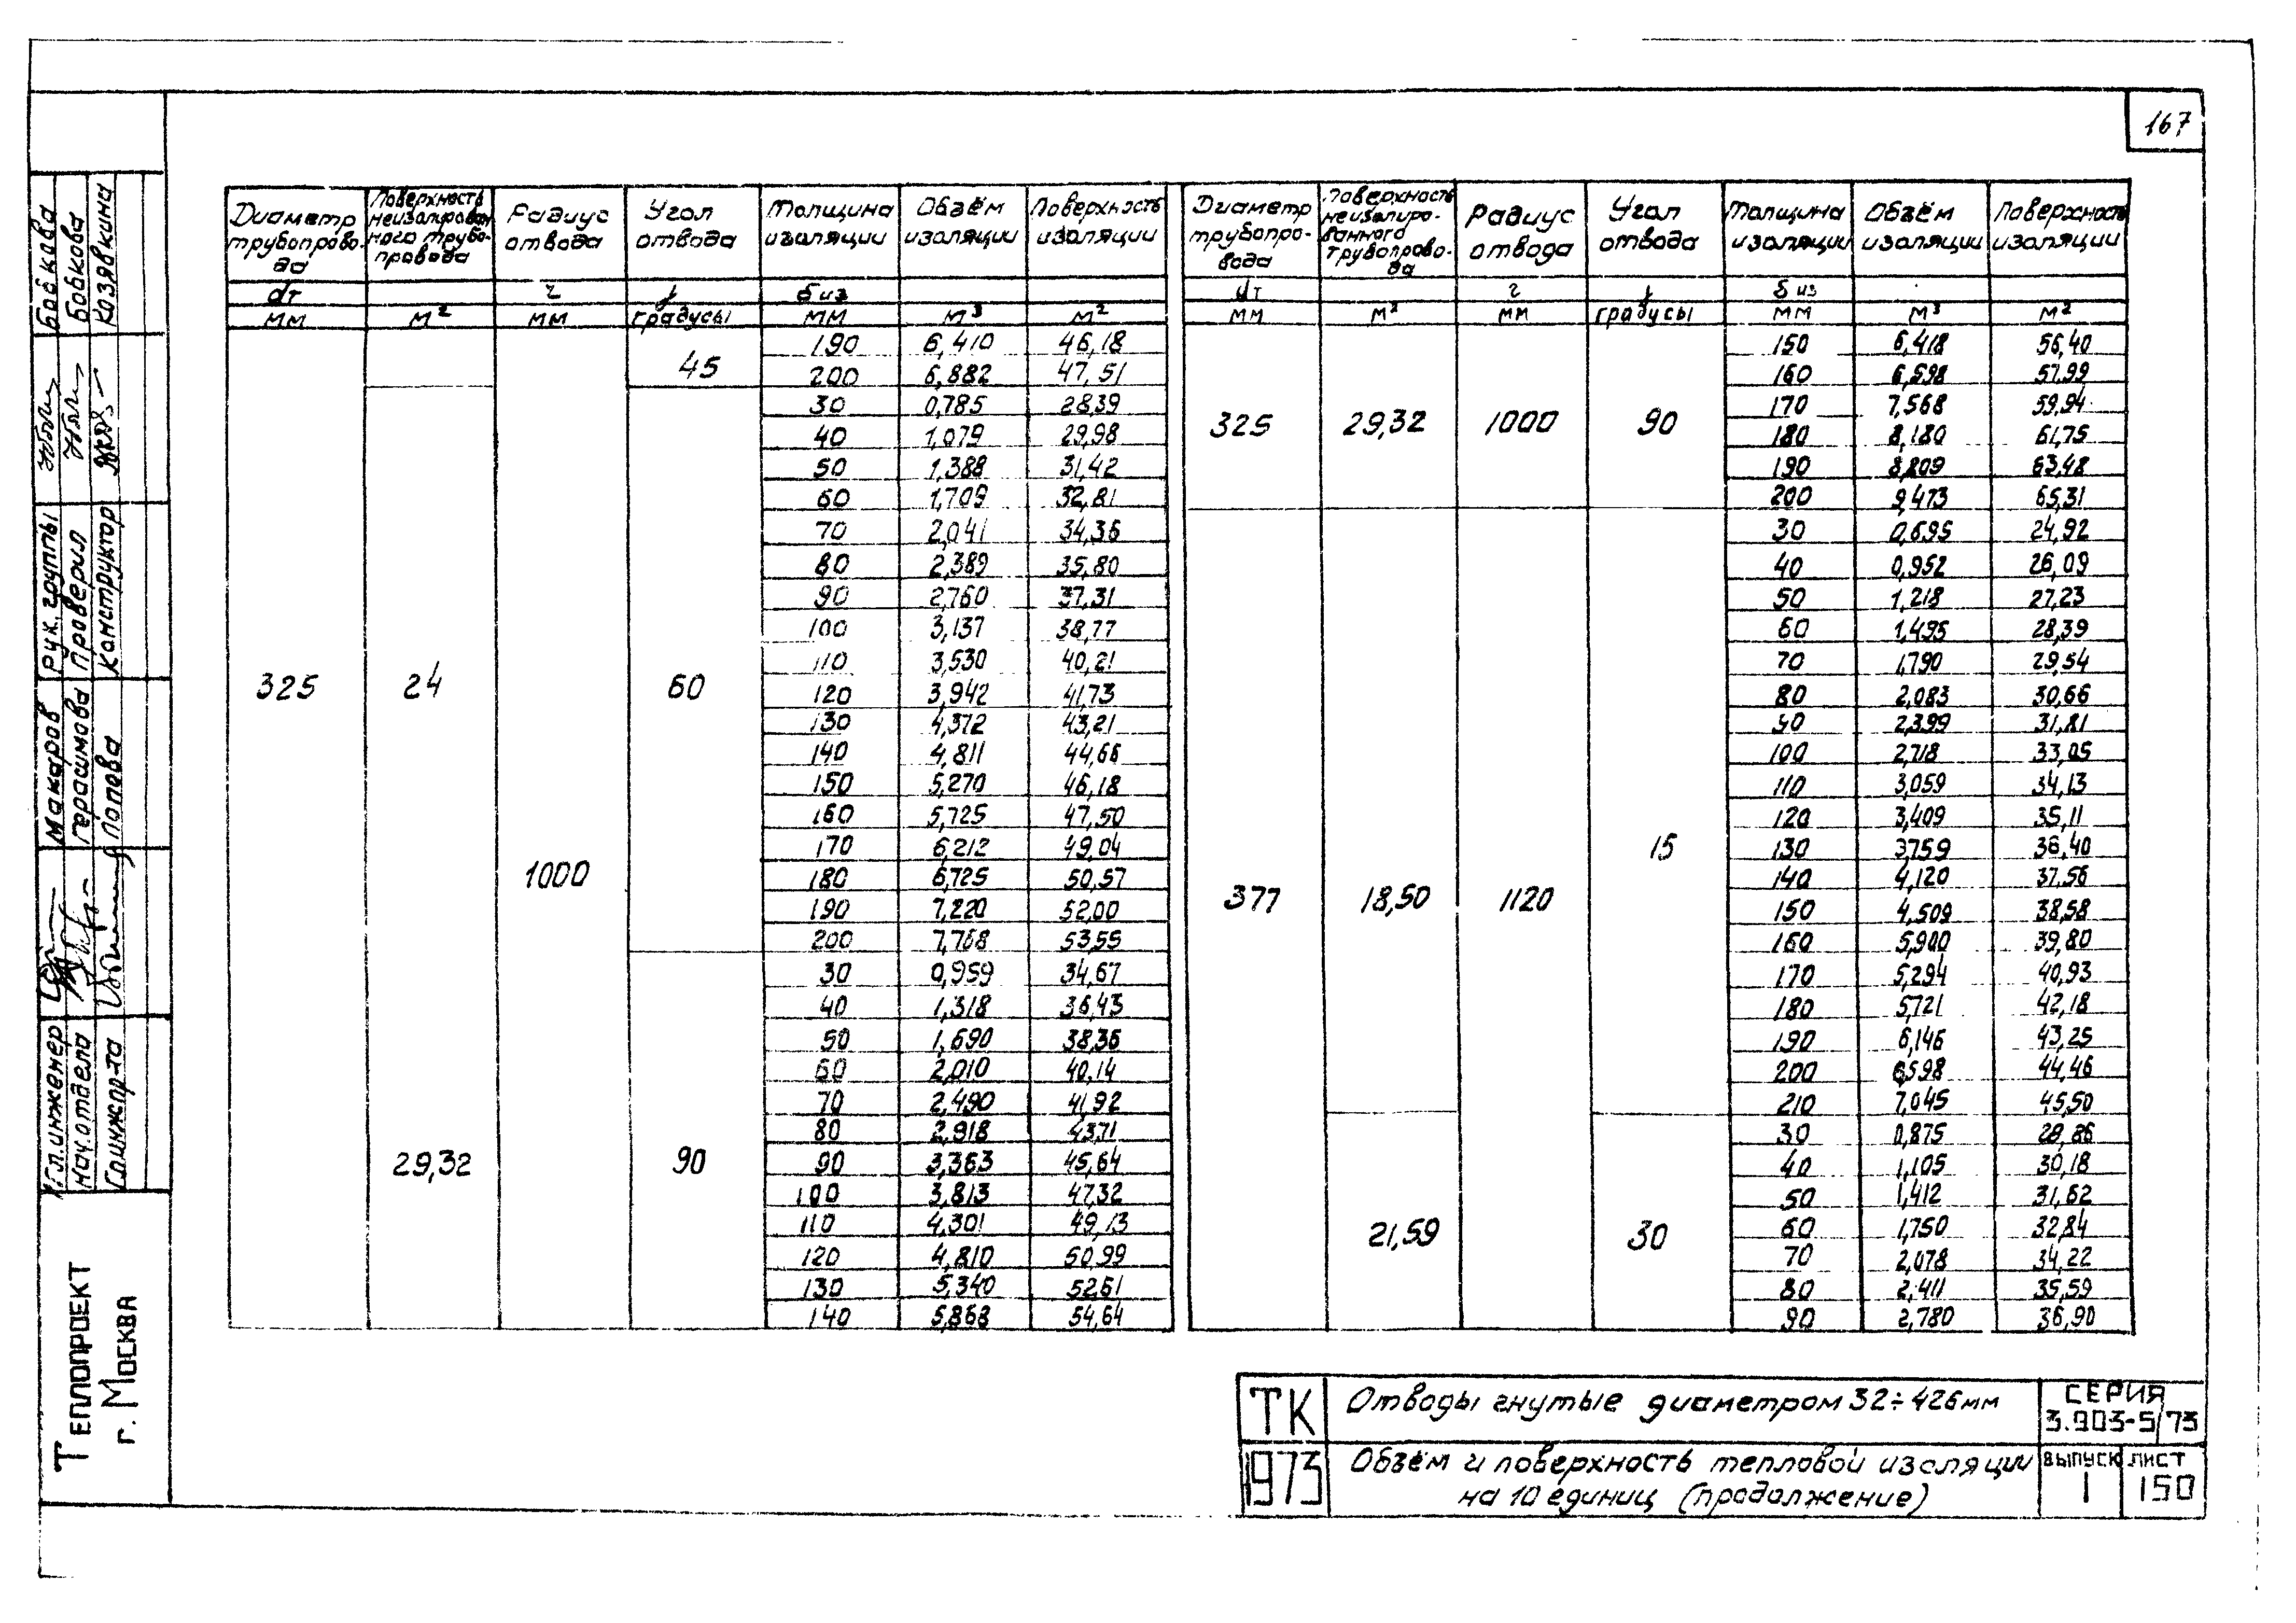 167
Диаметр трубопровода | Поверхность неизолированного трубопровода | Радиус отвода | Угол отвода | Толщина изоляции | Объём изоляции | Поверхность изоляции
dт | | r | | δиз | |
мм | м² | мм | градусы | мм | м³ | м²
325 | | 1000 | 45 | 190 | 6,410 | 46,18
200 | 6,882 | 47,51
24 | 60 | 30 | 0,785 | 28,39
40 | 1,079 | 29,98
50 | 1,388 | 31,42
60 | 1,709 | 32,81
70 | 2,041 | 34,36
80 | 2,389 | 35,80
90 | 2,760 | 37,31
100 | 3,137 | 38,77
110 | 3,530 | 40,21
120 | 3,942 | 41,73
130 | 4,372 | 43,21
140 | 4,811 | 44,66
150 | 5,270 | 46,18
160 | 5,725 | 47,50
170 | 6,212 | 49,04
180 | 6,725 | 50,57
190 | 7,220 | 52,00
200 | 7,768 | 53,55
29,32 | 90 | 30 | 0,959 | 34,67
40 | 1,318 | 36,43
50 | 1,690 | 38,36
60 | 2,010 | 40,14
70 | 2,490 | 41,92
80 | 2,918 | 43,71
90 | 3,363 | 45,64
100 | 3,813 | 47,32
110 | 4,301 | 49,13
120 | 4,810 | 50,99
130 | 5,340 | 52,61
140 | 5,868 | 54,64
Диаметр трубопровода | Поверхность неизолированного трубопровода | Радиус отвода | Угол отвода | Толщина изоляции | Объём изоляции | Поверхность изоляции
dт | | r | | δиз | |
мм | м² | мм | градусы | мм | м³ | м²
325 | 29,32 | 1000 | 90 | 150 | 6,418 | 56,40
160 | 6,598 | 57,99
170 | 7,568 | 59,94
180 | 8,180 | 61,75
190 | 8,809 | 63,48
200 | 9,473 | 65,31
377 | 18,50 | 1120 | 15 | 30 | 0,695 | 24,92
40 | 0,952 | 26,09
50 | 1,218 | 27,23
60 | 1,495 | 28,39
70 | 1,790 | 29,54
80 | 2,083 | 30,66
90 | 2,399 | 31,81
100 | 2,718 | 33,05
110 | 3,059 | 34,13
120 | 3,409 | 35,11
130 | 3,759 | 36,40
140 | 4,120 | 37,56
150 | 4,509 | 38,58
160 | 5,900 | 39,80
170 | 5,294 | 40,93
180 | 5,721 | 42,18
190 | 6,146 | 43,25
200 | 6,598 | 44,46
210 | 7,045 | 45,50
21,59 | 30 | 30 | 0,875 | 28,86
40 | 1,105 | 30,18
50 | 1,412 | 31,62
60 | 1,750 | 32,84
70 | 2,078 | 34,22
80 | 2,411 | 35,59
90 | 2,780 | 36,90
ТК
1973
Отводы гнутые диаметром 32÷426мм
Объём и поверхность тепловой изоляции
на 10 единиц (продолжение)
СЕРИЯ
3.903-5/73
ВЫПУСК
1
ЛИСТ
150
Гл.инженер | Макаров | Рук.группы | Бобкова
нач.отдела | Герасимова | Проверил | Бобкова
Гл.инж.пр-та | Попова | Конструктор | Козявкина
ТЕПЛОПРОЕКТ
г. МОСКВА